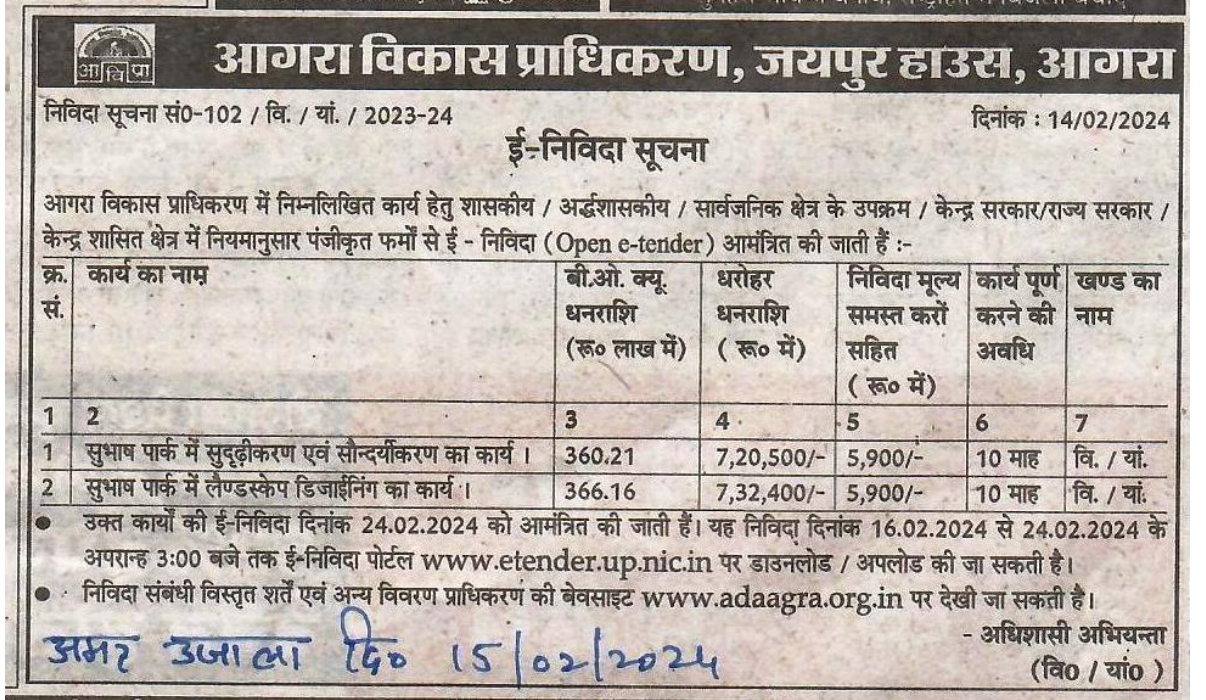 आ वि प्रा
आगरा विकास प्राधिकरण, जयपुर हाउस, आगरा
निविदा सूचना सं0-102 / वि. / यां. / 2023-24 दिनांक : 14/02/2024
ई-निविदा सूचना
आगरा विकास प्राधिकरण में निम्नलिखित कार्य हेतु शासकीय / अर्द्धशासकीय / सार्वजनिक क्षेत्र के उपक्रम / केन्द्र सरकार/राज्य सरकार /
केन्द्र शासित क्षेत्र में नियमानुसार पंजीकृत फर्मों से ई - निविदा (Open e-tender) आमंत्रित की जाती हैं :-
क्र. कार्य का नाम बी.ओ. क्यू. धरोहर निविदा मूल्य कार्य पूर्ण खण्ड का
सं. धनराशि धनराशि समस्त करों करने की नाम
(रू० लाख में) ( रू० में) सहित अवधि
( रू० में)
1 2 3 4 5 6 7
1 सुभाष पार्क में सुदृढ़ीकरण एवं सौन्दर्यीकरण का कार्य । 360.21 7,20,500/- 5,900/- 10 माह वि. / यां.
2 सुभाष पार्क में लैण्डस्केप डिजाईनिंग का कार्य । 366.16 7,32,400/- 5,900/- 10 माह वि. / यां.
● उक्त कार्यों की ई-निविदा दिनांक 24.02.2024 को आमंत्रित की जाती हैं। यह निविदा दिनांक 16.02.2024 से 24.02.2024 के
अपरान्ह 3:00 बजे तक ई-निविदा पोर्टल www.etender.up.nic.in पर डाउनलोड / अपलोड की जा सकती है।
● निविदा संबंधी विस्तृत शर्तें एवं अन्य विवरण प्राधिकरण की बेवसाइट www.adaagra.org.in पर देखी जा सकती है।
- अधिशासी अभियन्ता
(वि0 / यां0 )
अमर उजाला दि० 15/02/2024